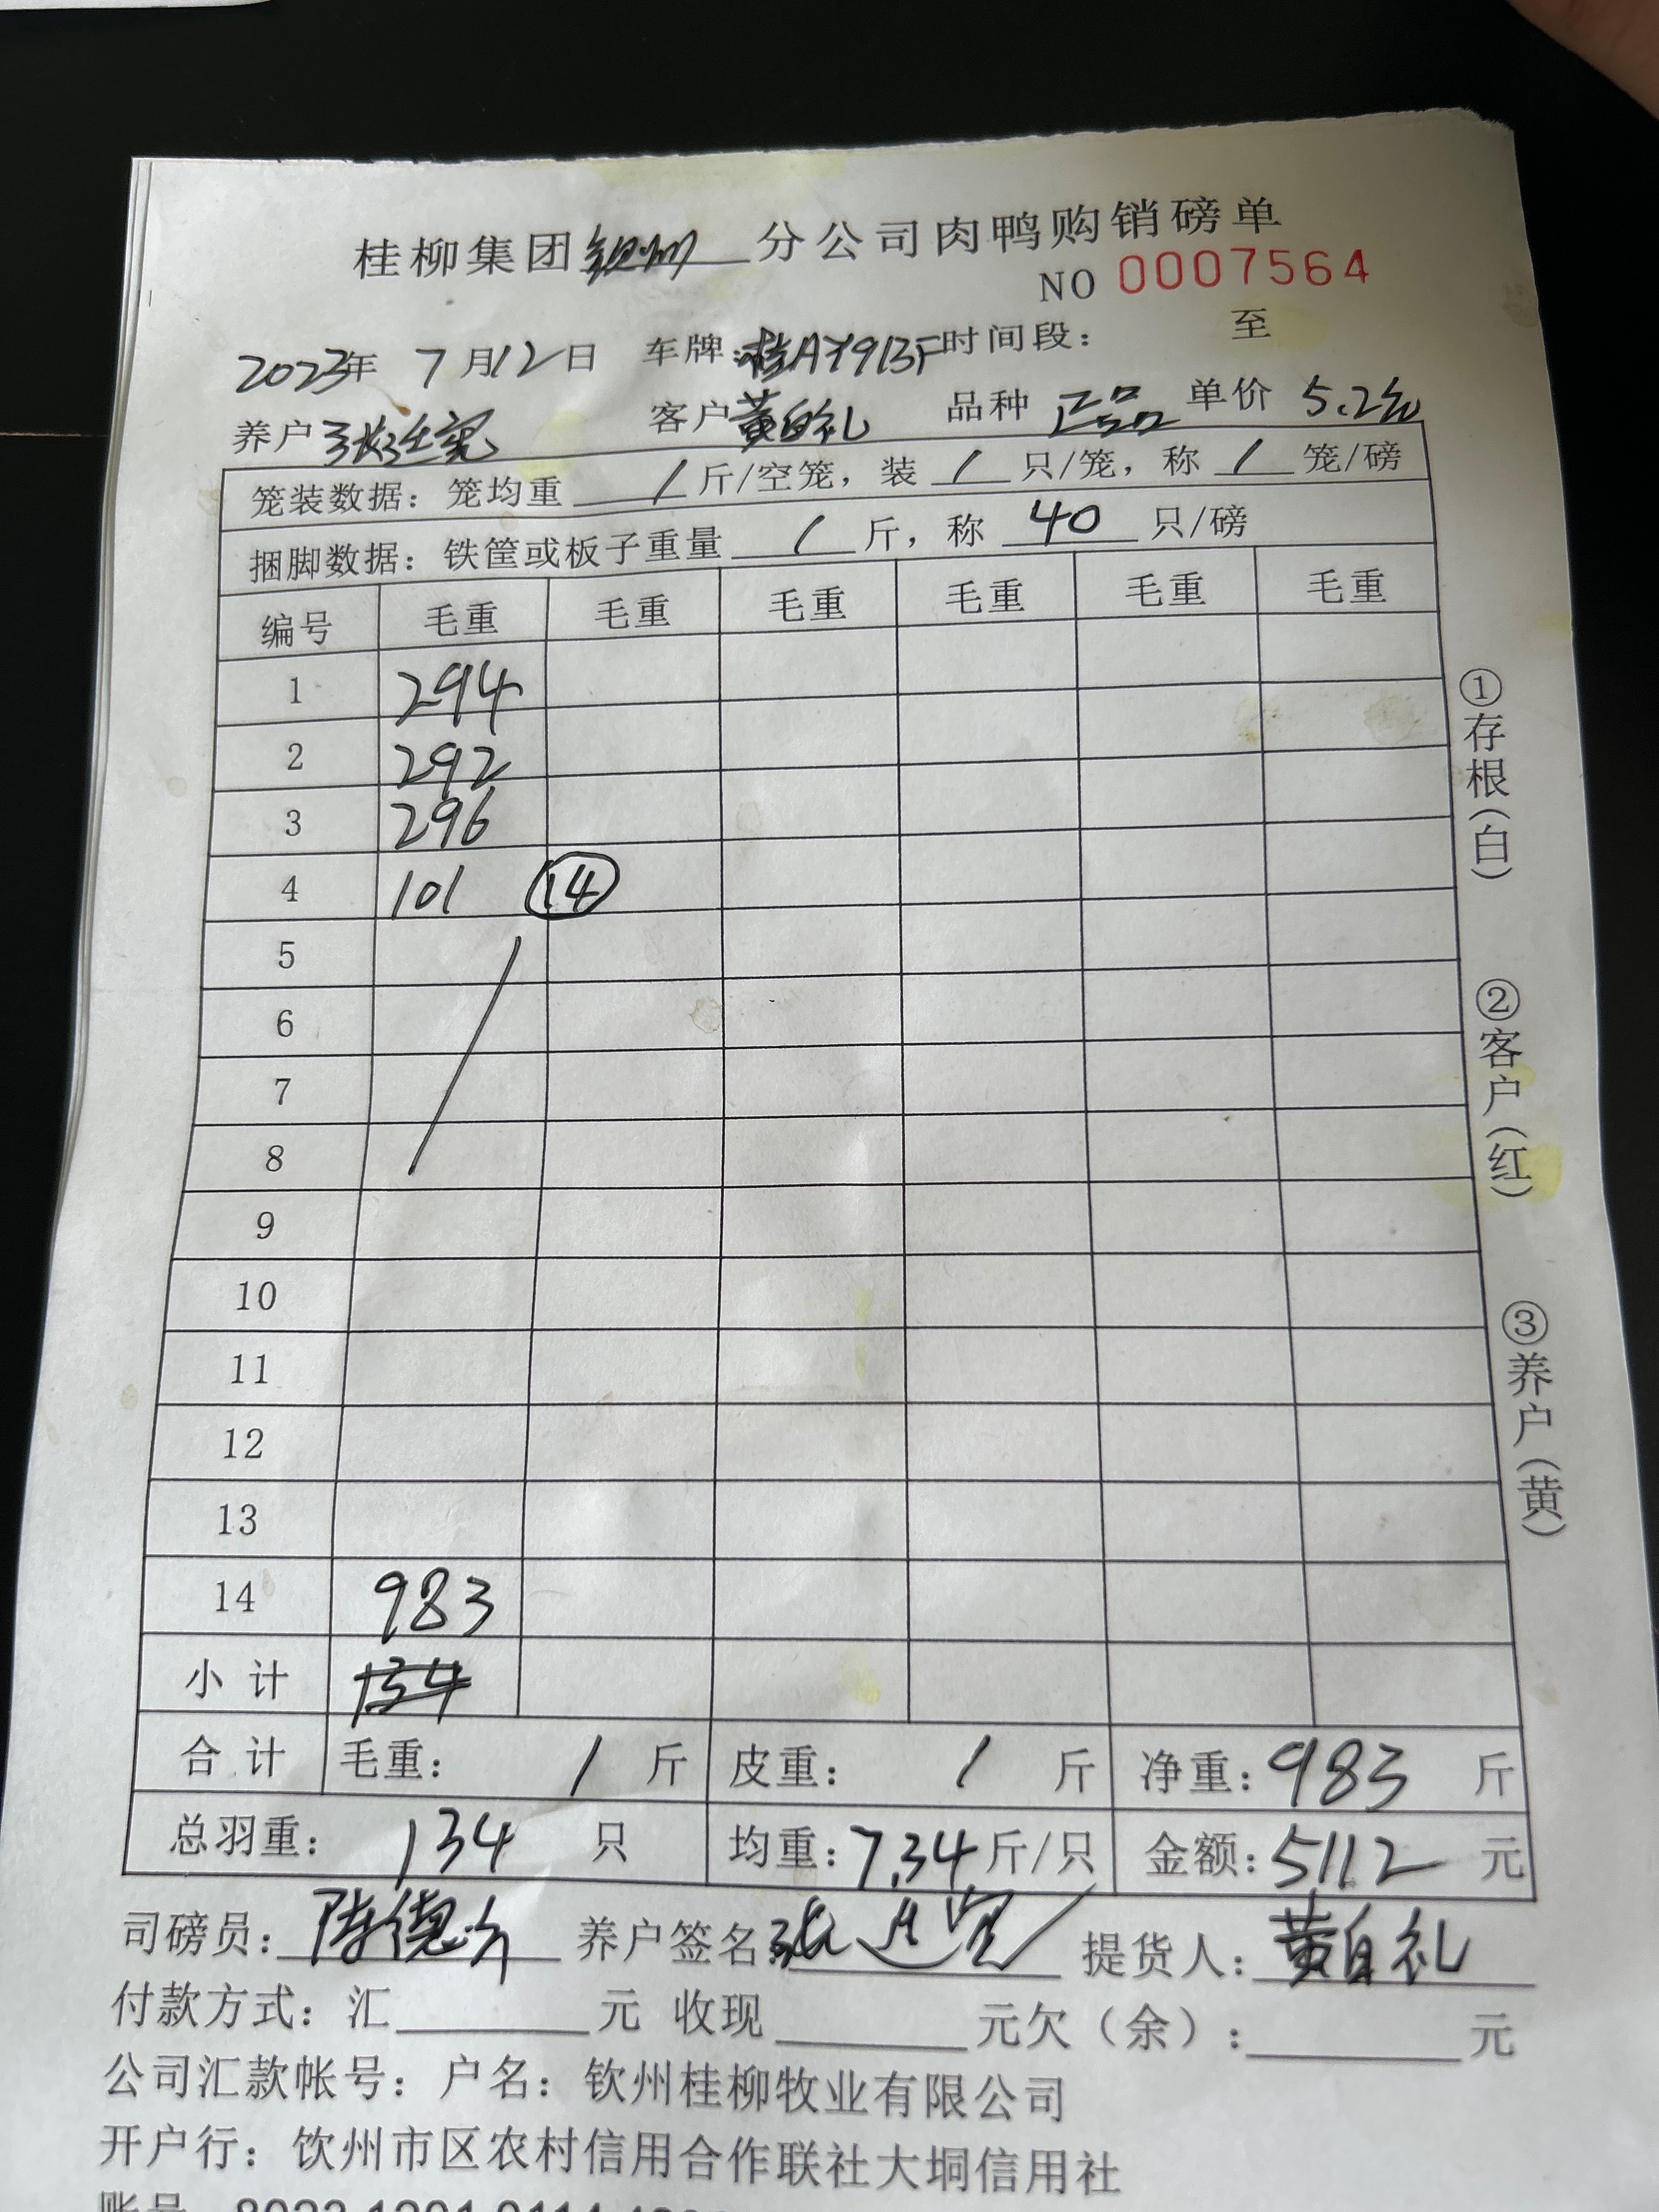 桂柳集团钦州分公司肉鸭购销磅单
NO 0007564
2023年 7月12日 车牌:桂AY913F时间段: 至
养户 客户黄自礼 品种 正品 单价 5.2元
笼装数据: 笼均重 / 斤/空笼, 装 / 只/笼, 称 / 笼/磅
捆脚数据: 铁筐或板子重量 / 斤, 称 40 只/磅
编号 毛重 毛重 毛重 毛重 毛重 毛重
1 294
2 292
3 296
4 101 14
5
6
7
8
9
10
11
12
13
14 983
小计 134
合计 毛重: / 斤 皮重: / 斤 净重: 983 斤
总羽重: 134 只 均重: 7.34 斤/只 金额: 5112 元
司磅员: 养户签名: 提货人: 黄自礼
付款方式: 汇 元 收现 元欠(余): 元
公司汇款帐号: 户名: 钦州桂柳牧业有限公司
开户行: 钦州市区农村信用合作联社大垌信用社
①存根(白)
②客户(红)
③养户(黄)